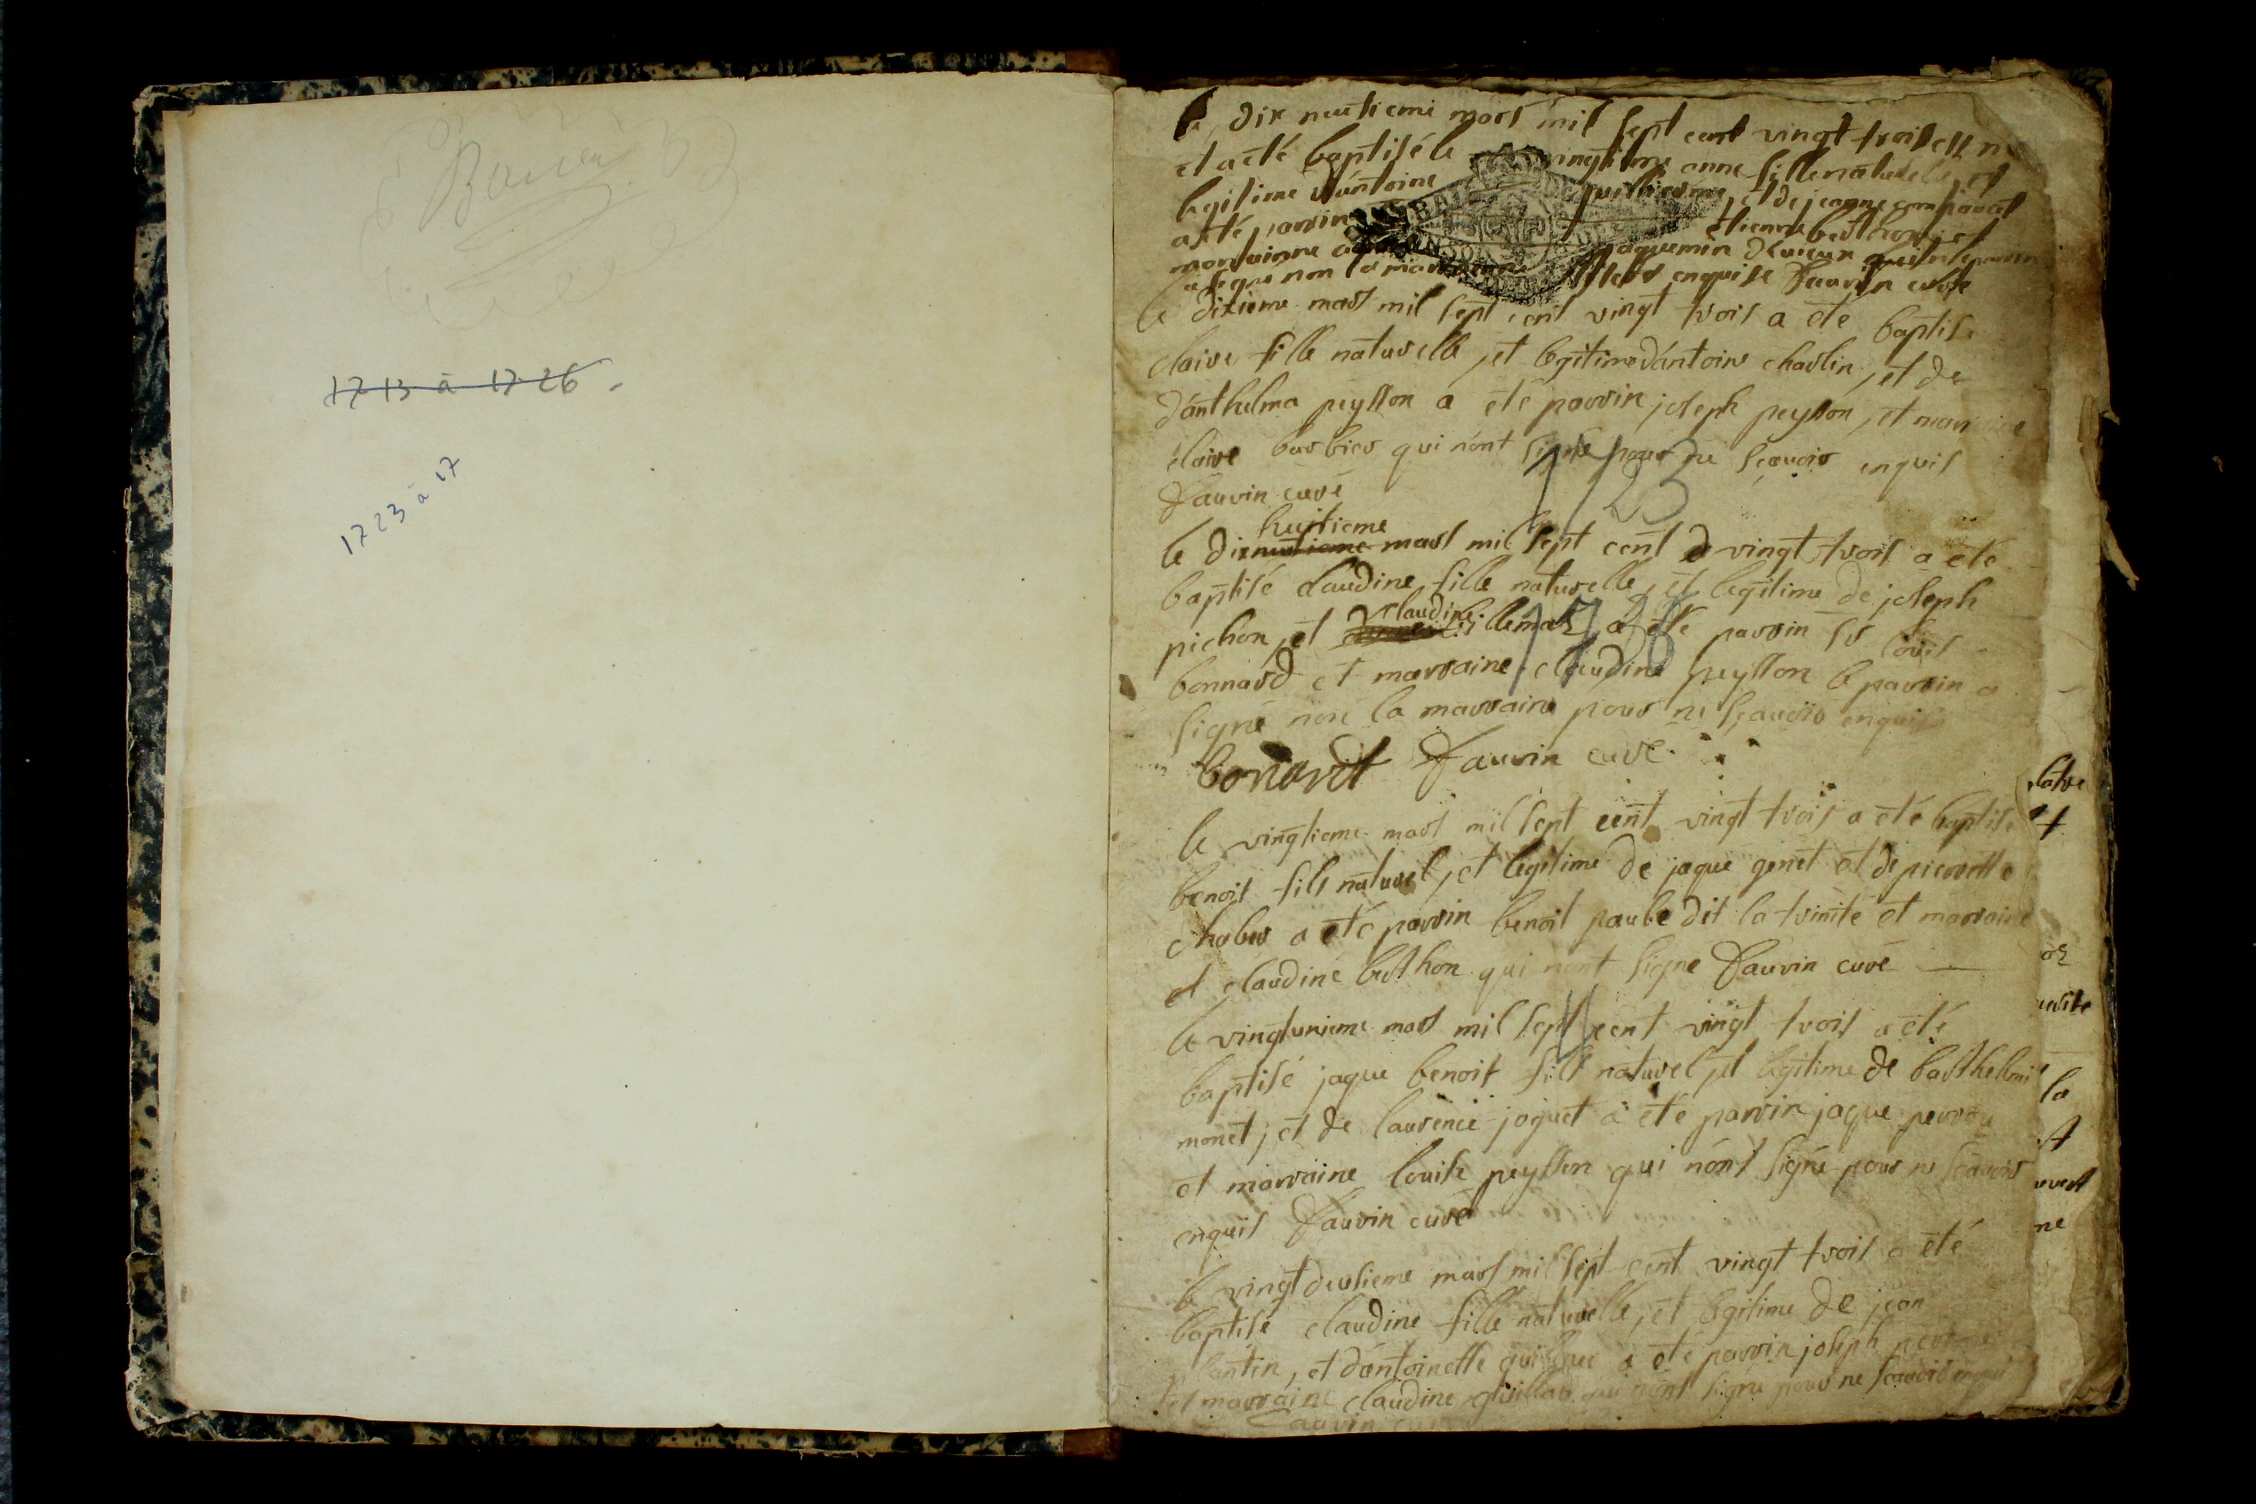 1713 à 1726.
1723 à 17
dix neutieme mars mil sept cent vingt trois est
et a eté baptisé le vingtieme anne fille naturelle et
legitime dántoine et de jeanne
a eté parrin etienne
marrainne
a signe non la marrainne enquise Fauvin curé
le dixieme mars mil sept cent vingt trois a eté baptise
claire fille naturelle, et legitime dántoine charlin, et de
dánthelma peysson a eté parrin joseph peysson, et marraine
claire barbier qui nónt signé pour ne sçavoir enquis
Fauvin curé
1723
huitieme
le dixneutieme mars mil sept cent de vingt trois a eté
baptisé claudine fille naturelle, et legitime de joseph
claudine
pichon, et billemaz, a eté parrin sr louis
1726
bonnard et marraine claudine peysson le parrin a
signé non la marraine pour ne sçavoir enquis
bonardt Fauvin curé
le vingtieme mars mil sept cent vingt trois a eté baptisé
benoit fils naturel, et legitime de jaque genet et de pierrette
chaber a eté parrin benoit paube dit la trinité et marraine
et claudine berthon qui nont signe Fauvin curé
le vingtunieme mars mil sept cent vingt trois a eté
baptisé jaque benoit fils naturel, et legitime de barthellmie
monet, et de laurence joguet a eté parrin jaque
et marraine louise peysson qui nónt signé pour ne sçavoir
enquis Fauvin curé
le vingtdeusieme mars mil sept cent vingt trois a eté
baptisé claudine fille naturelle, et legitime de jean
plantin, et dántoinette a eté parrin joseph
et marraine claudine qui nónt signe pour ne scavoir enquis
Fauvin curé